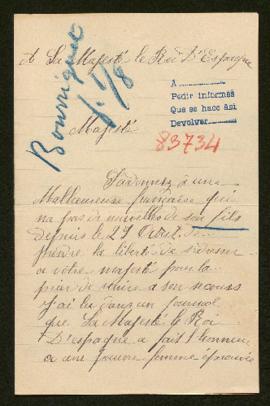 A Sa Majesté le Roi D'Espagne
A
Pedir informes
Que se hace ási
Devolver
83734
Majesté
Pardonnez à une
Malheureuse française qui
na pas de nouvelles de son fils
depuis le 29 Aout. De
prendre la liberté de s'adresser
a votre majesté pour la
prier de venire a son secours
J'ai lu dans un Journal
que Sa Majesté le Roi
D'espagne a fait l'honneur
a une pauvre femme éprouvée